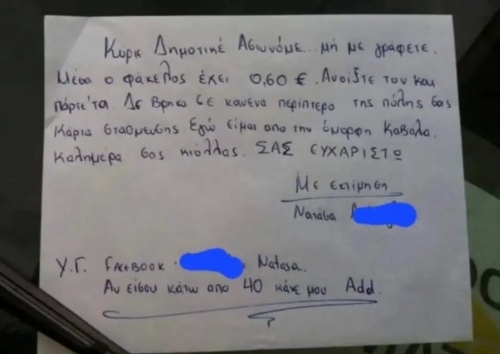 Κύριε Δημοτικέ Αστυνόμε... μή με γράφετε.
Μέσα ο φάκελος έχει 0,60 €. Ανοίξτε τον και
πάρτε'τα. Δε βρήκα σε κανένα περίπτερο της πόλης σας
Κάρτα στάθμευσης Εγώ είμαι από την όμορφη Καβάλα.
Καλημέρα σας κιόλλας. ΣΑΣ ΕΥΧΑΡΙΣΤΩ
Με εκτίμηση
Νατάσα
Υ.Γ. FACEBOOK. Natasa.
Αν είσαι κάτω από 40 κάνε μου Add.